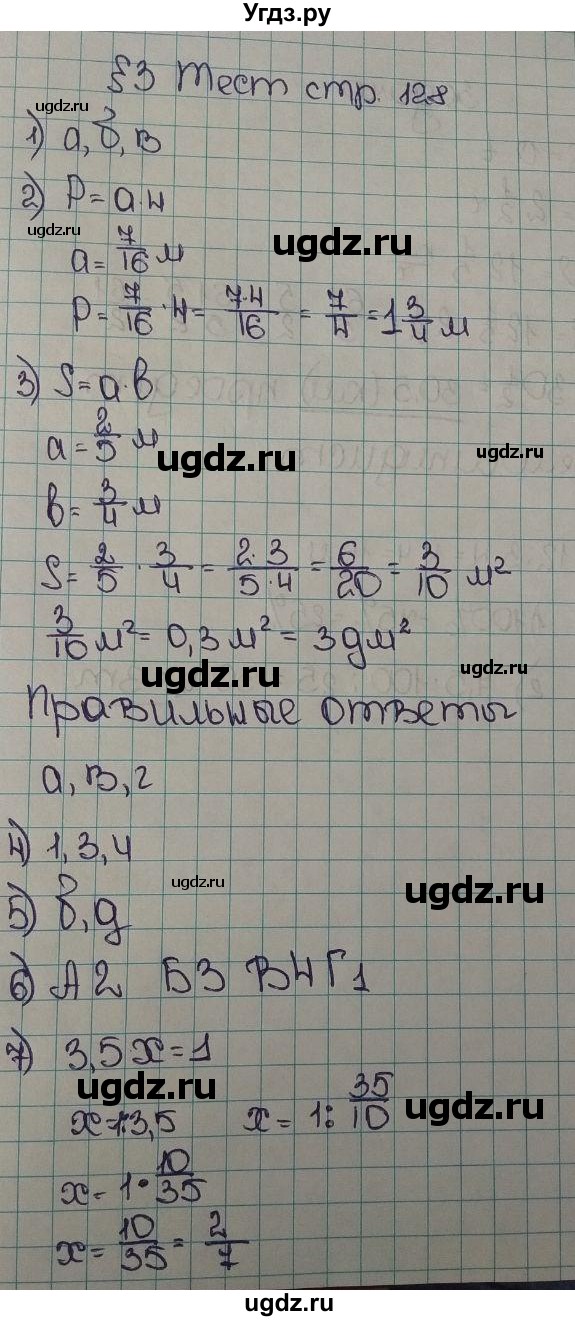 Угдз.ру
§3 Тест стр. 128
ugdz.ru
1) а, б, в
2) P = a·4
ugdz.ru
ugdz.ru
a = 7/16 м
P = 7/16 · 4 = 7·4/16 = 7/4 = 1 3/4 м
3) S = a·в
a = 2/5 м
ugdz.ru
ugdz.ru
в = 3/4 м
S = 2/5 · 3/4 = 2·3/5·4 = 6/20 = 3/10 м²
3/10 м² = 0,3 м² = 3 дм²
ugdz.ru
ugdz.ru
Правильные ответы
а, в, г
4) 1, 3, 4
ugdz.ru
ugdz.ru
5) б, д
6) А2 Б3 В4 Г1
7) 3,5x = 1
ugdz.ru
ugdz.ru
x = 1:3,5 x = 1 : 35/10
x = 1 · 10/35
x = 10/35 = 2/7
ugdz.ru